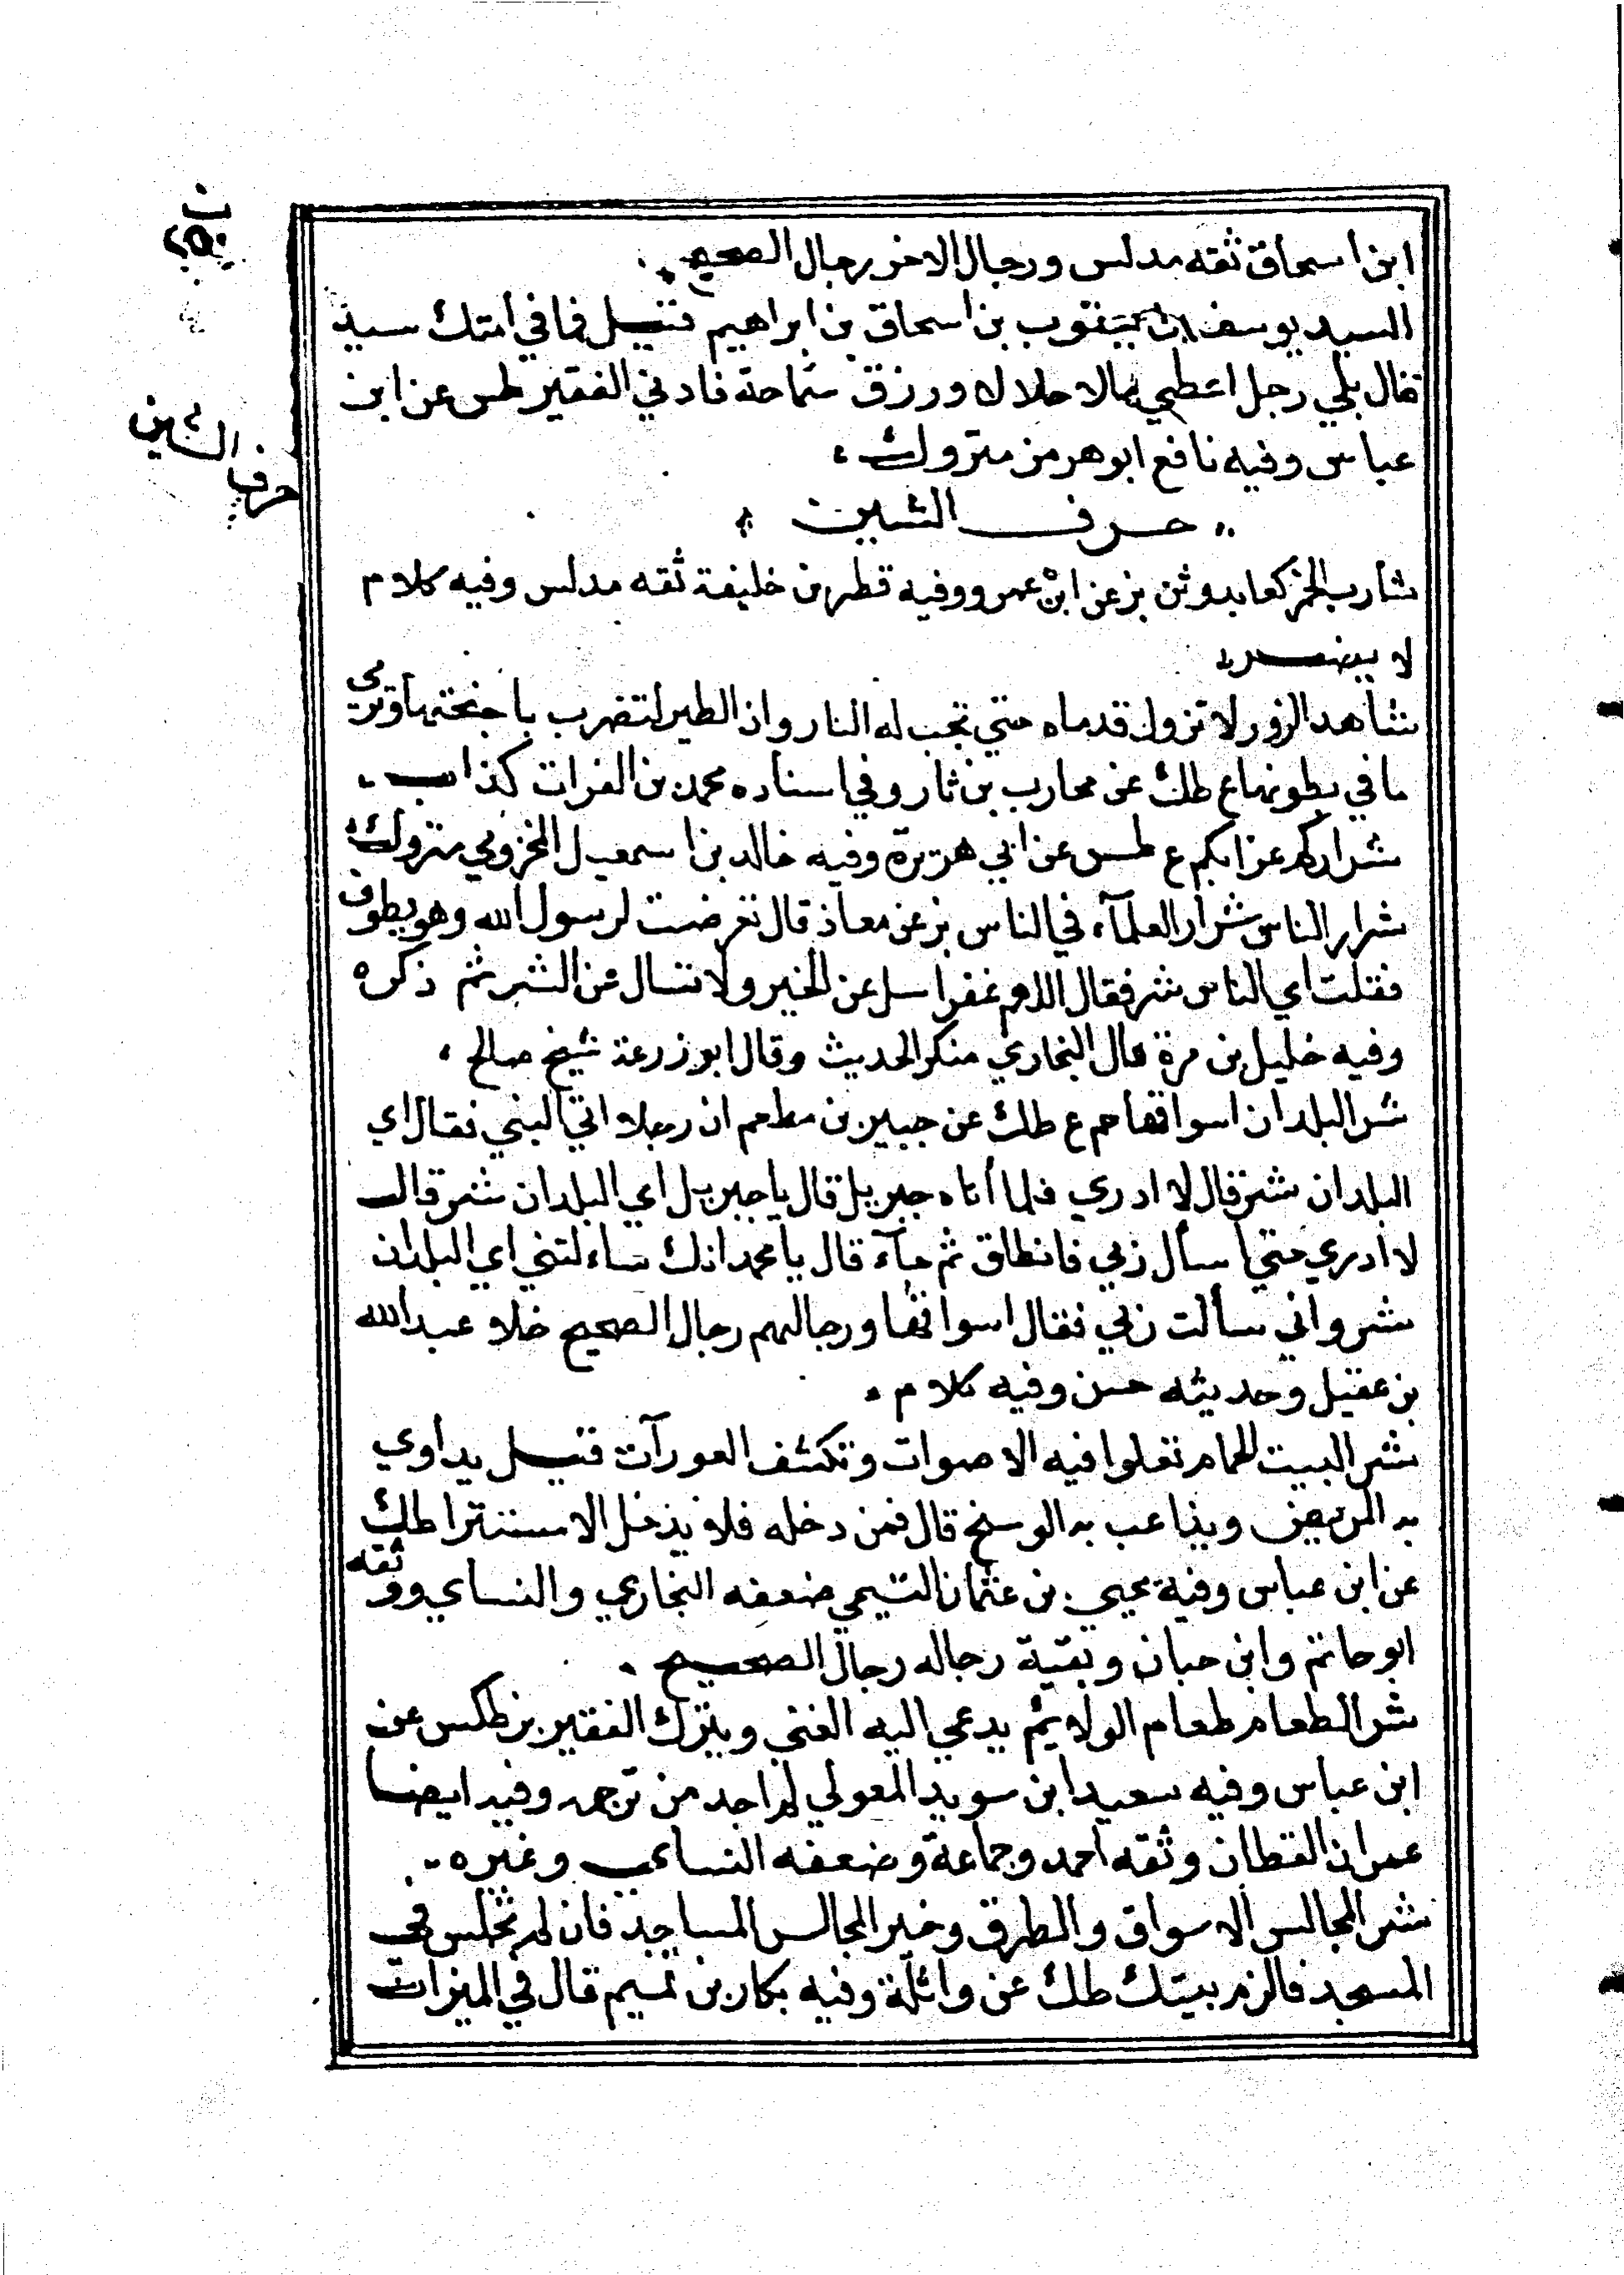 ابن اسحاق ثقه مدلس ورجال الاخر رجال الصحيح
السيد يوسف بن يعقوب بن اسحاق بن ابراهيم قيل فما في امتك سيد
فقال بلي رجل اعطي مالا حلالا ورزق سماحة فادني الفقير طس عن ابن
عباس وفيه نافع ابو هرمز متروك
حرف الشين
حرف الشين
شارب الخمر كعابد وثن بز عن ابن عمرو وفيه قطر بن خليفة ثقه مدلس وفيه كلام
لا يضر
شاهد الزور لا تزول قدماه حتي تجب له النار وان الطير لتضرب باجنحتها وترمي
ما في بطونها ع طك عن محارب بن ثار وفي اسناده محمد بن الفرات كذاب
شراركم عزابكم ع طس عن ابي هريرة وفيه خالد بن اسمعيل المخزومي متروك
شرار الناس شرار العلمآء في الناس بز عن معاذ قال تعرضت لرسول الله وهو يطوف
فقلت اي الناس شر فقال اللهم غفرا سل عن الخير ولا تسال عن الشر ثم ذكره
وفيه خليل بن مرة قال البخاري منكر الحديث وقال ابو زرعة شيخ صالح
شر البلدان اسواقها حم ع طك عن جبير بن مطعم ان رجلا اتي النبي فقال اي
البلدان شر قال لا ادري فلما أتاه جبريل قال يا جبريل اي البلدان شر قال
لا ادري حتي اسأل ربي فانطلق ثم جآء قال يا محمد انك ساءلتني اي البلدان
شر واني سألت ربي فقال اسواقها ورجالهم رجال الصحيح خلا عبد الله
بن عقيل وحديثه حسن وفيه كلام
شر البيت الحمام تعلوا فيه الاصوات وتكشف العورآت قيل يداوي
به المريض ويذهب به الوسخ قال فمن دخله فلا يدخل الا مستترا طك
عن ابن عباس وفيه يحيي بن عثمان التيمي ضعفه البخاري والنساي ووثقه
ابو حاتم وابن حبان وبقية رجاله رجال الصحيح
شر الطعام طعام الولايم يدعي اليه الغني ويترك الفقير بز طكس عن
ابن عباس وفيه سعيد ابن سويد المعولي لم اجد من ترجمه وفيه ايضا
عمران القطان وثقه احمد وجماعة وضعفه النساي وغيره
شر المجالس الاسواق والطرق وخير المجالس المساجد فان لم تجلس في
المسجد فالزم بيتك طك عن واثلة وفيه بكار بن تميم قال في الميزان